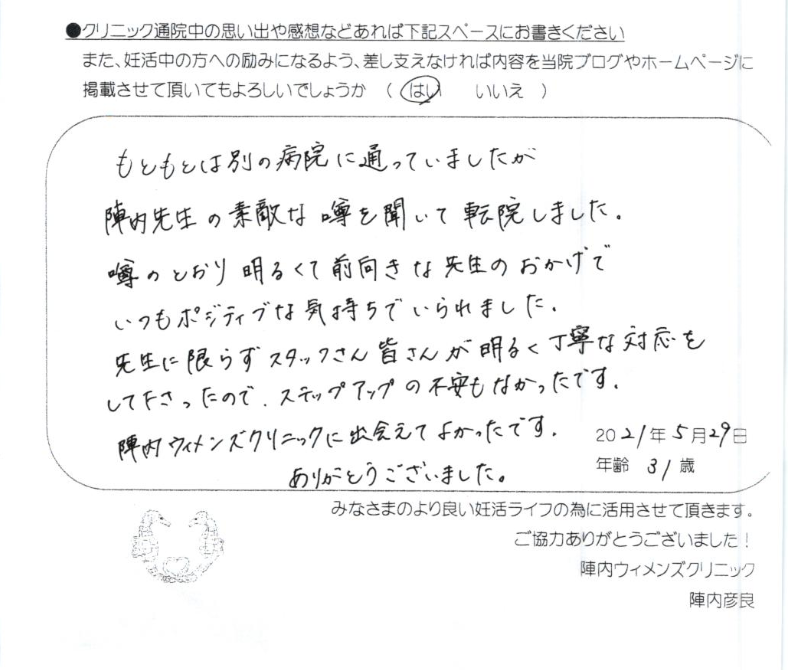 ●クリニック通院中の思い出や感想などあれば下記スペースにお書きください
また、妊活中の方への励みになるよう、差し支えなければ内容を当院ブログやホームページに
掲載させて頂いてもよろしいでしょうか （ はい いいえ ）
もともとは別の病院に通っていましたが
陣内先生の素敵な噂を聞いて転院しました。
噂のとおり明るくて前向きな先生のおかげで
いつもポジティブな気持ちでいられました。
先生に限らずスタッフさん皆さんが明るく丁寧な対応を
して下さったので、ステップアップの不安もなかったです。
陣内ウィメンズクリニックに出会えてよかったです。
ありがとうございました。
2021年5月29日
年齢 31歳
みなさまのより良い妊活ライフの為に活用させて頂きます。
ご協力ありがとうございました！
陣内ウィメンズクリニック
陣内彦良